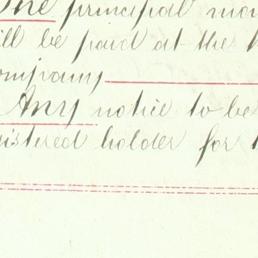 One principal mon
ill be paid at the
ompany
Any notice to be
istered holder for